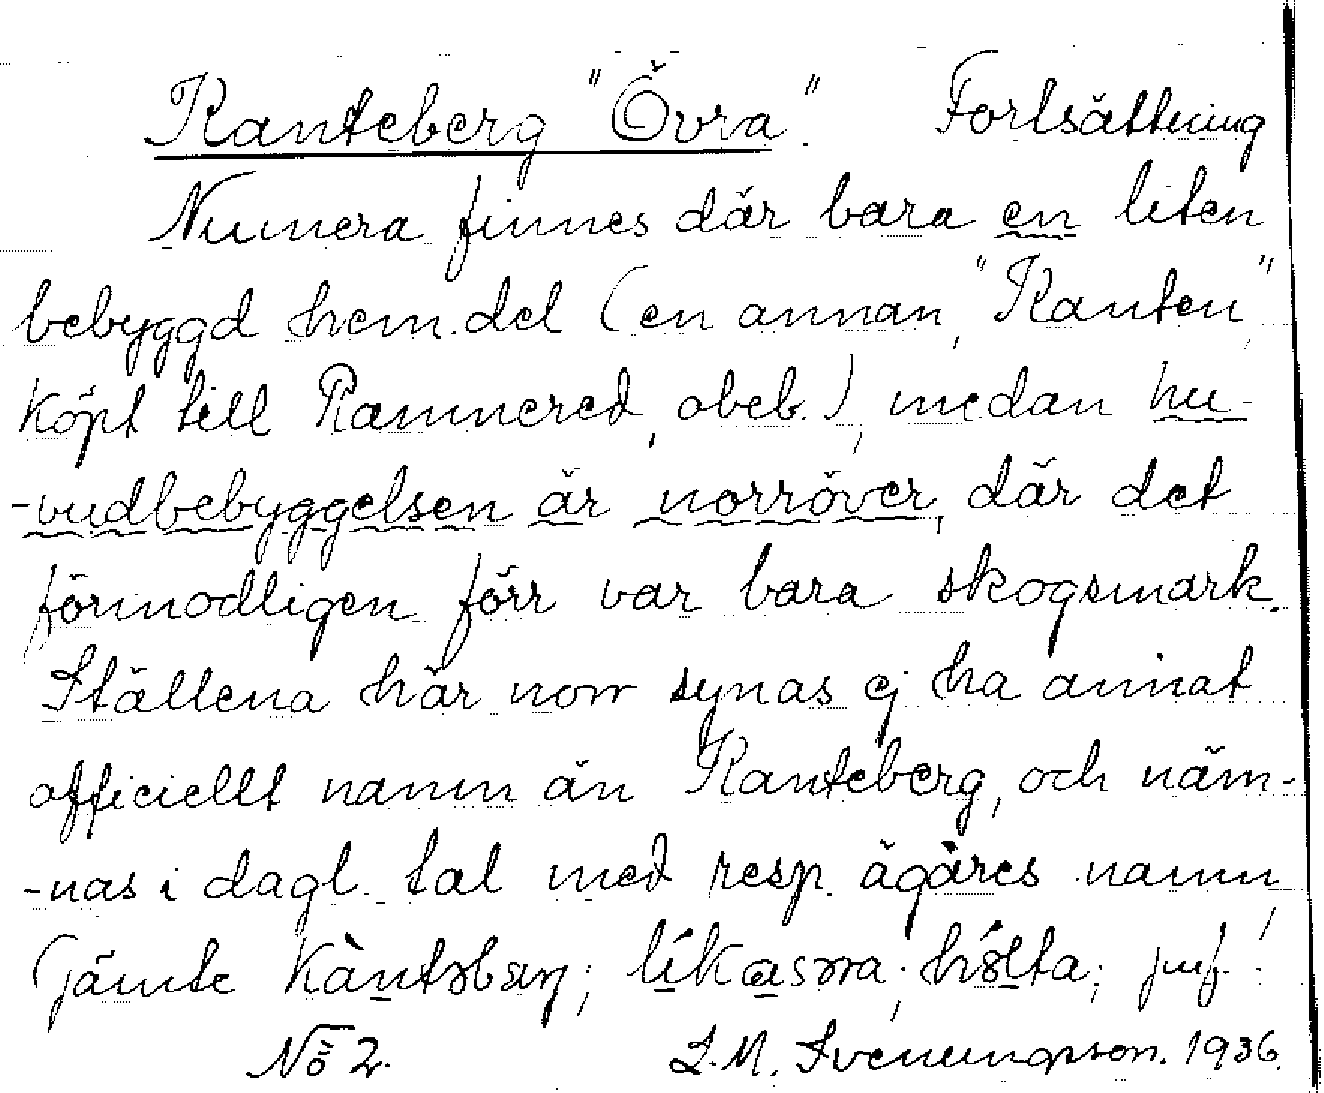 Kanteberg "Övra". Fortsättning
Numera finnes där bara en liten
bebyggd hem.del (en annan, "Kanten",
köpt till Rammered, obeb.), medan hu-
-vudbebyggelsen är norröver, där det
förmodligen förr var bara skogsmark.
Ställena här norr synas ej ha annat
officiellt namn än Kanteberg, och näm-
-nas i dagl. tal med resp. ägares namn
(jämte
No 2. S.M. Svenungsson. 1936.